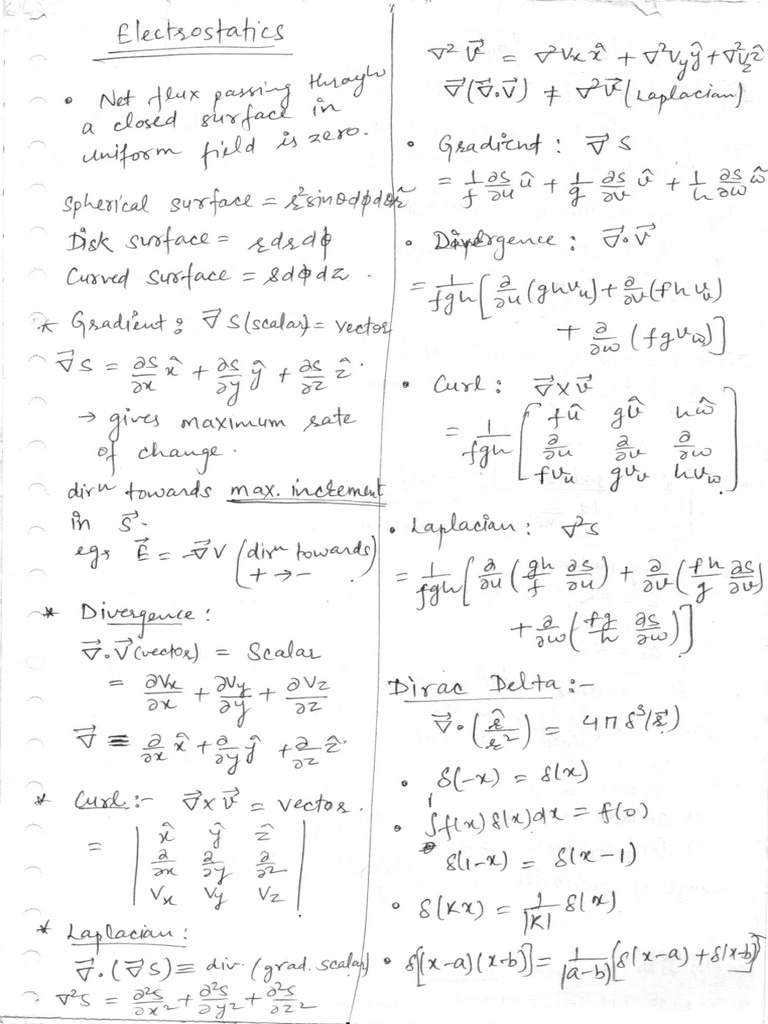 Electrostatics
• Net flux passing through
a closed surface in
uniform field is zero.
Spherical surface = r²sinθdϕdθr̂
Disk surface = rdrdϕ
Curved Surface = rdϕdz.
* Gradient: ∇⃗ S(scalar) = vector
∇⃗S = ∂S/∂x x̂ + ∂S/∂y ŷ + ∂S/∂z ẑ.
→ gives maximum rate
of change.
dirn towards max. increment
in S⃗.
egs E⃗ = -∇⃗V (dirn towards + → -)
* Divergence:
∇⃗.V⃗(vector) = Scalar
= ∂Vx/∂x + ∂Vy/∂y + ∂Vz/∂z
∇⃗ ≡ ∂/∂x x̂ + ∂/∂y ŷ + ∂/∂z ẑ.
* Curl:- ∇⃗×v⃗ = vector.
= | x̂ ŷ ẑ |
| ∂/∂x ∂/∂y ∂/∂z |
| Vx Vy Vz |
* Laplacian:
∇⃗.(∇⃗S) ≡ div. (grad. scalar)
∇²S = ∂²S/∂x² + ∂²S/∂y² + ∂²S/∂z²
∇² V⃗ = ∇²Vx x̂ + ∇²Vy ŷ + ∇²Vz ẑ
∇⃗(∇⃗.V⃗) ≠ ∇²V⃗ (Laplacian)
• Gradient: ∇⃗ S
= 1/f ∂S/∂u û + 1/g ∂S/∂v v̂ + 1/h ∂S/∂w ŵ
• Divergence: ∇⃗.V⃗
= 1/fgh [∂/∂u (ghVu) + ∂/∂v (fhVv)
+ ∂/∂w (fgVw)]
• Curl: ∇⃗×v⃗
= 1/fgh [ fû gv̂ hŵ
∂/∂u ∂/∂v ∂/∂w
fVu gVv hVw ]
• Laplacian: ∇²S
= 1/fgh [∂/∂u (gh/f ∂S/∂u) + ∂/∂v (fh/g ∂S/∂v)
+ ∂/∂w (fg/h ∂S/∂w)]
Dirac Delta:-
∇⃗.(r̂/r²) = 4πδ³(r⃗)
• δ(-x) = δ(x)
• ∫f(x)δ(x)dx = f(0)
δ(1-x) = δ(x-1)
• δ(Kx) = 1/|K| δ(x)
• δ[(x-a)(x-b)] = 1/|a-b| [δ(x-a) + δ(x-b)]